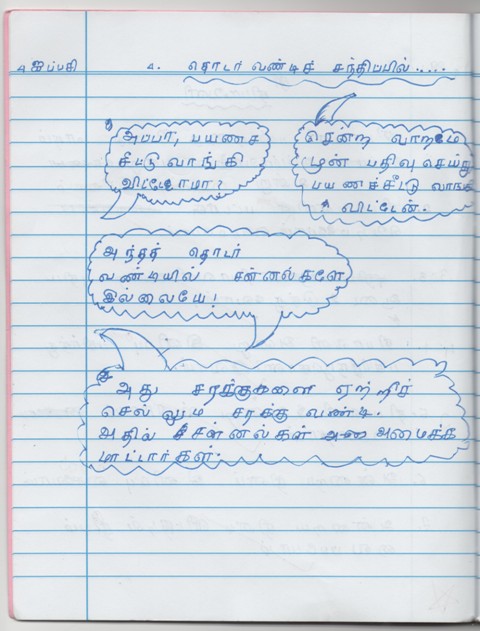 4 ஐப்பசி
4. தொடர் வண்டிச் சந்திப்பில்.....
அப்பா, பயணச்
சீட்டு வாங்கி
விட்டோமா?
சென்ற வாரமே
முன் பதிவு செய்து
பயணச்சீட்டு வாங்க
விட்டேன்.
அந்தத் தொடர்
வண்டியில் சன்னல்களே
இல்லையே!
அது சரக்குகளை ஏற்றிச்
செல்லும் சரக்கு வண்டி.
அதில் சன்னல்கள் அமைக்க
மாட்டார்கள்.